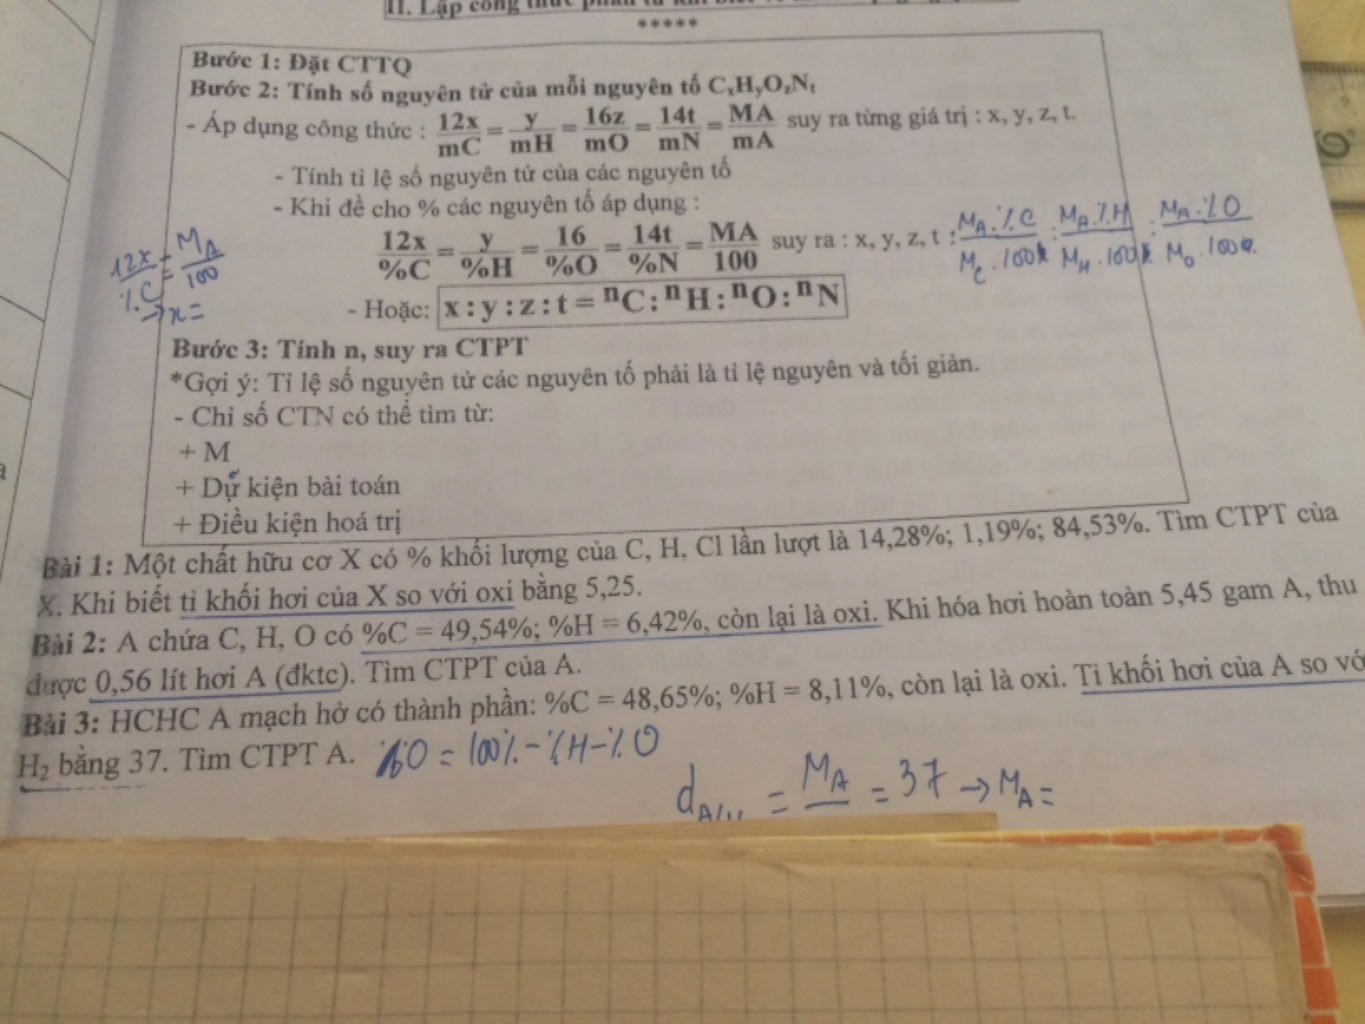 II. Lập công thức phân tử khi biết
*****
Bước 1: Đặt CTTQ
Bước 2: Tính số nguyên tử của mỗi nguyên tố CxHyOzNt
- Áp dụng công thức : 12x/mC = y/mH = 16z/mO = 14t/mN = MA/mA suy ra từng giá trị : x, y, z, t.
- Tính tỉ lệ số nguyên tử của các nguyên tố
- Khi đề cho % các nguyên tố áp dụng :
12x/%C = y/%H = 16/%O = 14t/%N = MA/100 suy ra : x, y, z, t : MA.%C/MC.100 : MA.%H/MH.100 : MA.%O/MO.100
12x/%C = MA/100
→ x =
- Hoặc: x : y : z : t = nC : nH : nO : nN
Bước 3: Tính n, suy ra CTPT
*Gợi ý: Tỉ lệ số nguyên tử các nguyên tố phải là tỉ lệ nguyên và tối giản.
- Chỉ số CTN có thể tìm từ:
+ M
+ Dự kiện bài toán
+ Điều kiện hoá trị
Bài 1: Một chất hữu cơ X có % khối lượng của C, H, Cl lần lượt là 14,28%; 1,19%; 84,53%. Tìm CTPT của
X. Khi biết tỉ khối hơi của X so với oxi bằng 5,25.
Bài 2: A chứa C, H, O có %C = 49,54%; %H = 6,42%, còn lại là oxi. Khi hóa hơi hoàn toàn 5,45 gam A, thu
được 0,56 lít hơi A (đktc). Tìm CTPT của A.
Bài 3: HCHC A mạch hở có thành phần: %C = 48,65%; %H = 8,11%, còn lại là oxi. Tỉ khối hơi của A so vớ
H2 bằng 37. Tìm CTPT A. %O = 100% - %H - %O
dA/ = MA = 37 → MA =